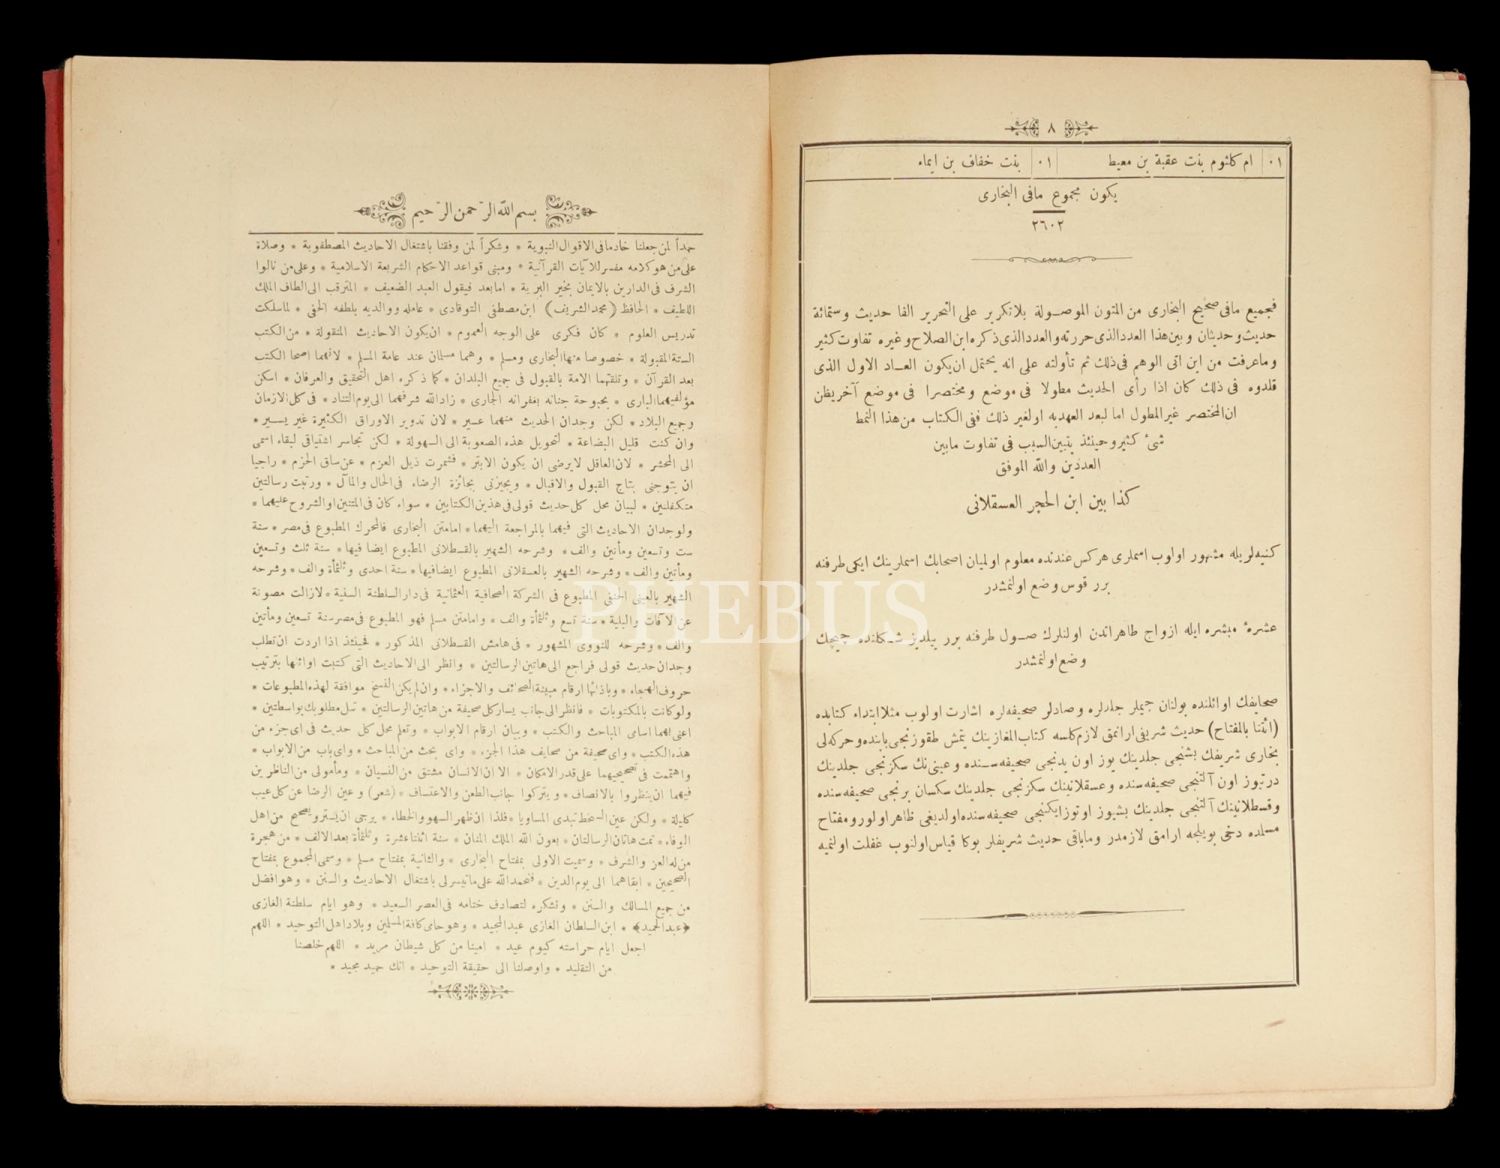 ٨
٠١ ام كلثوم بنت عقبة بن معيط ٠١ بنت خفاف بن ايماء
يكون مجموع مافى البخارى
٢٦٠٢
فجميع مافى صحيح البخارى من المتون الموصولة بلا تكرير على التحرير الفا حديث وستمائة
حديث وحديثان وبين هذا العدد الذى حررته والعدد الذى ذكره ابن الصلاح وغيره تفاوت كثير
وماعرفت من ابن اتى الوهم فى ذلك ثم تأولته على انه يحتمل ان يكون العاد الاول الذى
قلدوه فى ذلك كان اذا رأى الحديث مطولا فى موضع ومختصرا فى موضع آخر يظن
ان المختصر غير المطول اما لبعد العهد به او لغير ذلك ففى الكتاب من هذا النمط
شئ كثير وحينئذ يتبين السبب فى تفاوت مابين
العددين والله الموفق
كذا بين ابن الحجر العسقلانى
كنيه لريله مشهور اولوب اسملرى هركس عندنده معلوم اوليان اصحابك اسملرينك ايكى طرفنه
برر قوس وضع اولنمشدر
عشرۀ مبشره ايله ازواج طاهراتدن اولنلرك صول طرفنه برر ييلديز شكلنده چيچك
وضع اولنمشدر
صحايفك اوائلنده بولنان جيملر جلدلره وصادلر صحيفه لره اشارت اولوب مثلا ابتداء كتابده
(ائتنا بالمفتاح) حديث شريفى ارانمق لازم كلسه كتاب المغازينك يتمش طقوزنجى بابنده وحركه لى
بخارى شريفك بشنجى جلدينك يوز اون يدنجى صحيفه سنده وعينى نك سكزنجى جلدينك
درتيوز اون آلتنجى صحيفه سنده وعسقلانينك سكزنجى جلدينك سكسان برنجى صحيفه سنده
وقسطلانينك آلتنجى جلدينك بشيوز اوتوز ايكنجى صحيفه سنده اولديغى ظاهر اولور ومفتاح
مسلمده دخى بويلجه ارامق لازمدر وماباقى حديث شريفلر بوكا قياس اولنوب غفلت اولنميه
بسم الله الرحمن الرحيم
حمداً لمن جعلنا خادما فى الاقوال النبوية * وشكراً لمن وفقنا باشتغال الاحاديث المصطفوية * وصلاة
على من هو كلامه مفسر للآيات القرآنية * ومبنى قواعد الاحكام الشريعة الاسلامية * وعلى من نالوا
الشرف فى الدارين بالايمان بخير البرية * اما بعد فيقول العبد الضعيف * المترقب الى الطاف الملك
اللطيف * الحافظ (محمد الشريف) ابن مصطفى التوقادى * عامله ووالديه بلطفه الخفى * لما سلكت
تدريس العلوم * كان فكرى على الوجه العموم * ان يكون الاحاديث المنقولة * من الكتب
الستة المقبولة * خصوصا منها البخارى ومسلم * وهما مسلمان عند عامة المسلم * لانهما اصحا الكتب
بعد القرآن * وتلقتهما الامة بالقبول فى جميع البلدان * كما ذكره اهل التحقيق والعرفان * اسكن
مؤلفيهما البارى * بحبوحة جنانه بغفرانه الجارى * زاد الله شرفهما الى يوم التناد * فى كل الازمان
وجميع البلاد * لكن وجدان الحديث منهما عسير * لان تدوير الاوراق الكثيرة غير يسير *
وان كنت قليل البضاعة * لتحويل هذه الصعوبة الى السهولة * لكن تجاسر اشتياقى لبقاء اسمى
الى المحشر * لان العاقل لا يرضى ان يكون الابتر * فشمرت ذيل العزم * عن ساق الحزم * راجيا
ان يتوجنى بتاج القبول والاقبال * ويجيزنى بجائزة الرضاء فى الحال والمآل * ورتبت رسالتين
متكفلتين * لبيان محل كل حديث قولى فى هذين الكتابين * سواء كان فى المتنين او الشروح عليهما *
ولوجدان الاحاديث التى فيهما بالمراجعة اليهما * اما متن البخارى فالمحرك المطبوع فى مصر * سنة
ست وتسعين ومأتين والف * وشرحه الشهير بالقسطلانى المطبوع ايضا فيها * سنة ثلث وتسعين
ومأتين والف * وشرحه الشهير بالعسقلانى المطبوع ايضا فيها * سنة احدى وثلثمأة والف * وشرحه
الشهير بالعينى الحنفى المطبوع فى الشركة الصحافية العثمانية فى دار السلطنة السنية * لازالت مصونة
عن الآفات والبلية * سنة تسع وثلثمأة والف * واما متن مسلم فهو المطبوع فى مصر سنة تسعين ومأتين
والف * وشرحه للنووى المشهور * فى هامش القسطلانى المذكور * فحينئذ اذا اردت ان تطلب
وجدان حديث قولى فراجع الى هاتين الرسالتين * وانظر الى الاحاديث التى كتبت اوائلها بترتيب
حروف الهجاء * وباذلها ارقام مبينة الصحائف والاجزاء * وان لم يكن النسخ موافقة لهذه المطبوعات *
ولو كانت بالمكتوبات * فانظر الى جانب يسار كل صحيفة من هاتين الرسالتين * تسل مطلوبك بواسطتين *
اعنى بهما اسامى المباحث والكتب * وبيان ارقام الابواب * وتعلم محل كل حديث فى اى جزء من
هذه الكتب * واى صحيفة من صحايف هذا الجزء * واى بحث من المباحث * واى باب من الابواب *
واهتممت فى تصحيحهما على قدر الامكان * الا ان الانسان مشتق من النسيان * ومأمولى من الناظرين
فيهما ان ينظروا بالانصاف * ويتركوا جانب الطعن والاعتساف * (شعر) وعين الرضا عن كل عيب
كليلة * ولكن عين السخط تبدى المساويا * فلذا ان ظهر السهو والخطاء * يرجى ان يستر ويصحح من اهل
الوفاء * تمت هاتان الرسالتان * بعون الله الملك المنان * سنة اثنتا عشرة وثلثمأة بعد الالف * من هجرة
من له العز والشرف * وسميت الاولى بمفتاح البخارى * والثانية بمفتاح مسلم * وسمى المجموع بمفتاح
الصحيحين * ابقاهما الى يوم الدين * فنحمد الله على ما تيسر لى باشتغال الاحاديث والسنن * وهو افضل
من جميع المسالك والسنن * ونشكره لتصادف ختامه فى العصر السعيد * وهو ايام سلطنة الغازى
﴿عبد الحميد﴾ * ابن السلطان الغازى عبد المجيد * وهو حامى كافة المسلمين وبلاد اهل التوحيد * اللهم
اجعل ايام حراسته كيوم عيد * امينا من كل شيطان مريد * اللهم خلصنا
من التقليد * واوصلنا الى حقيقة التوحيد * انك حميد مجيد *
PHEBUS